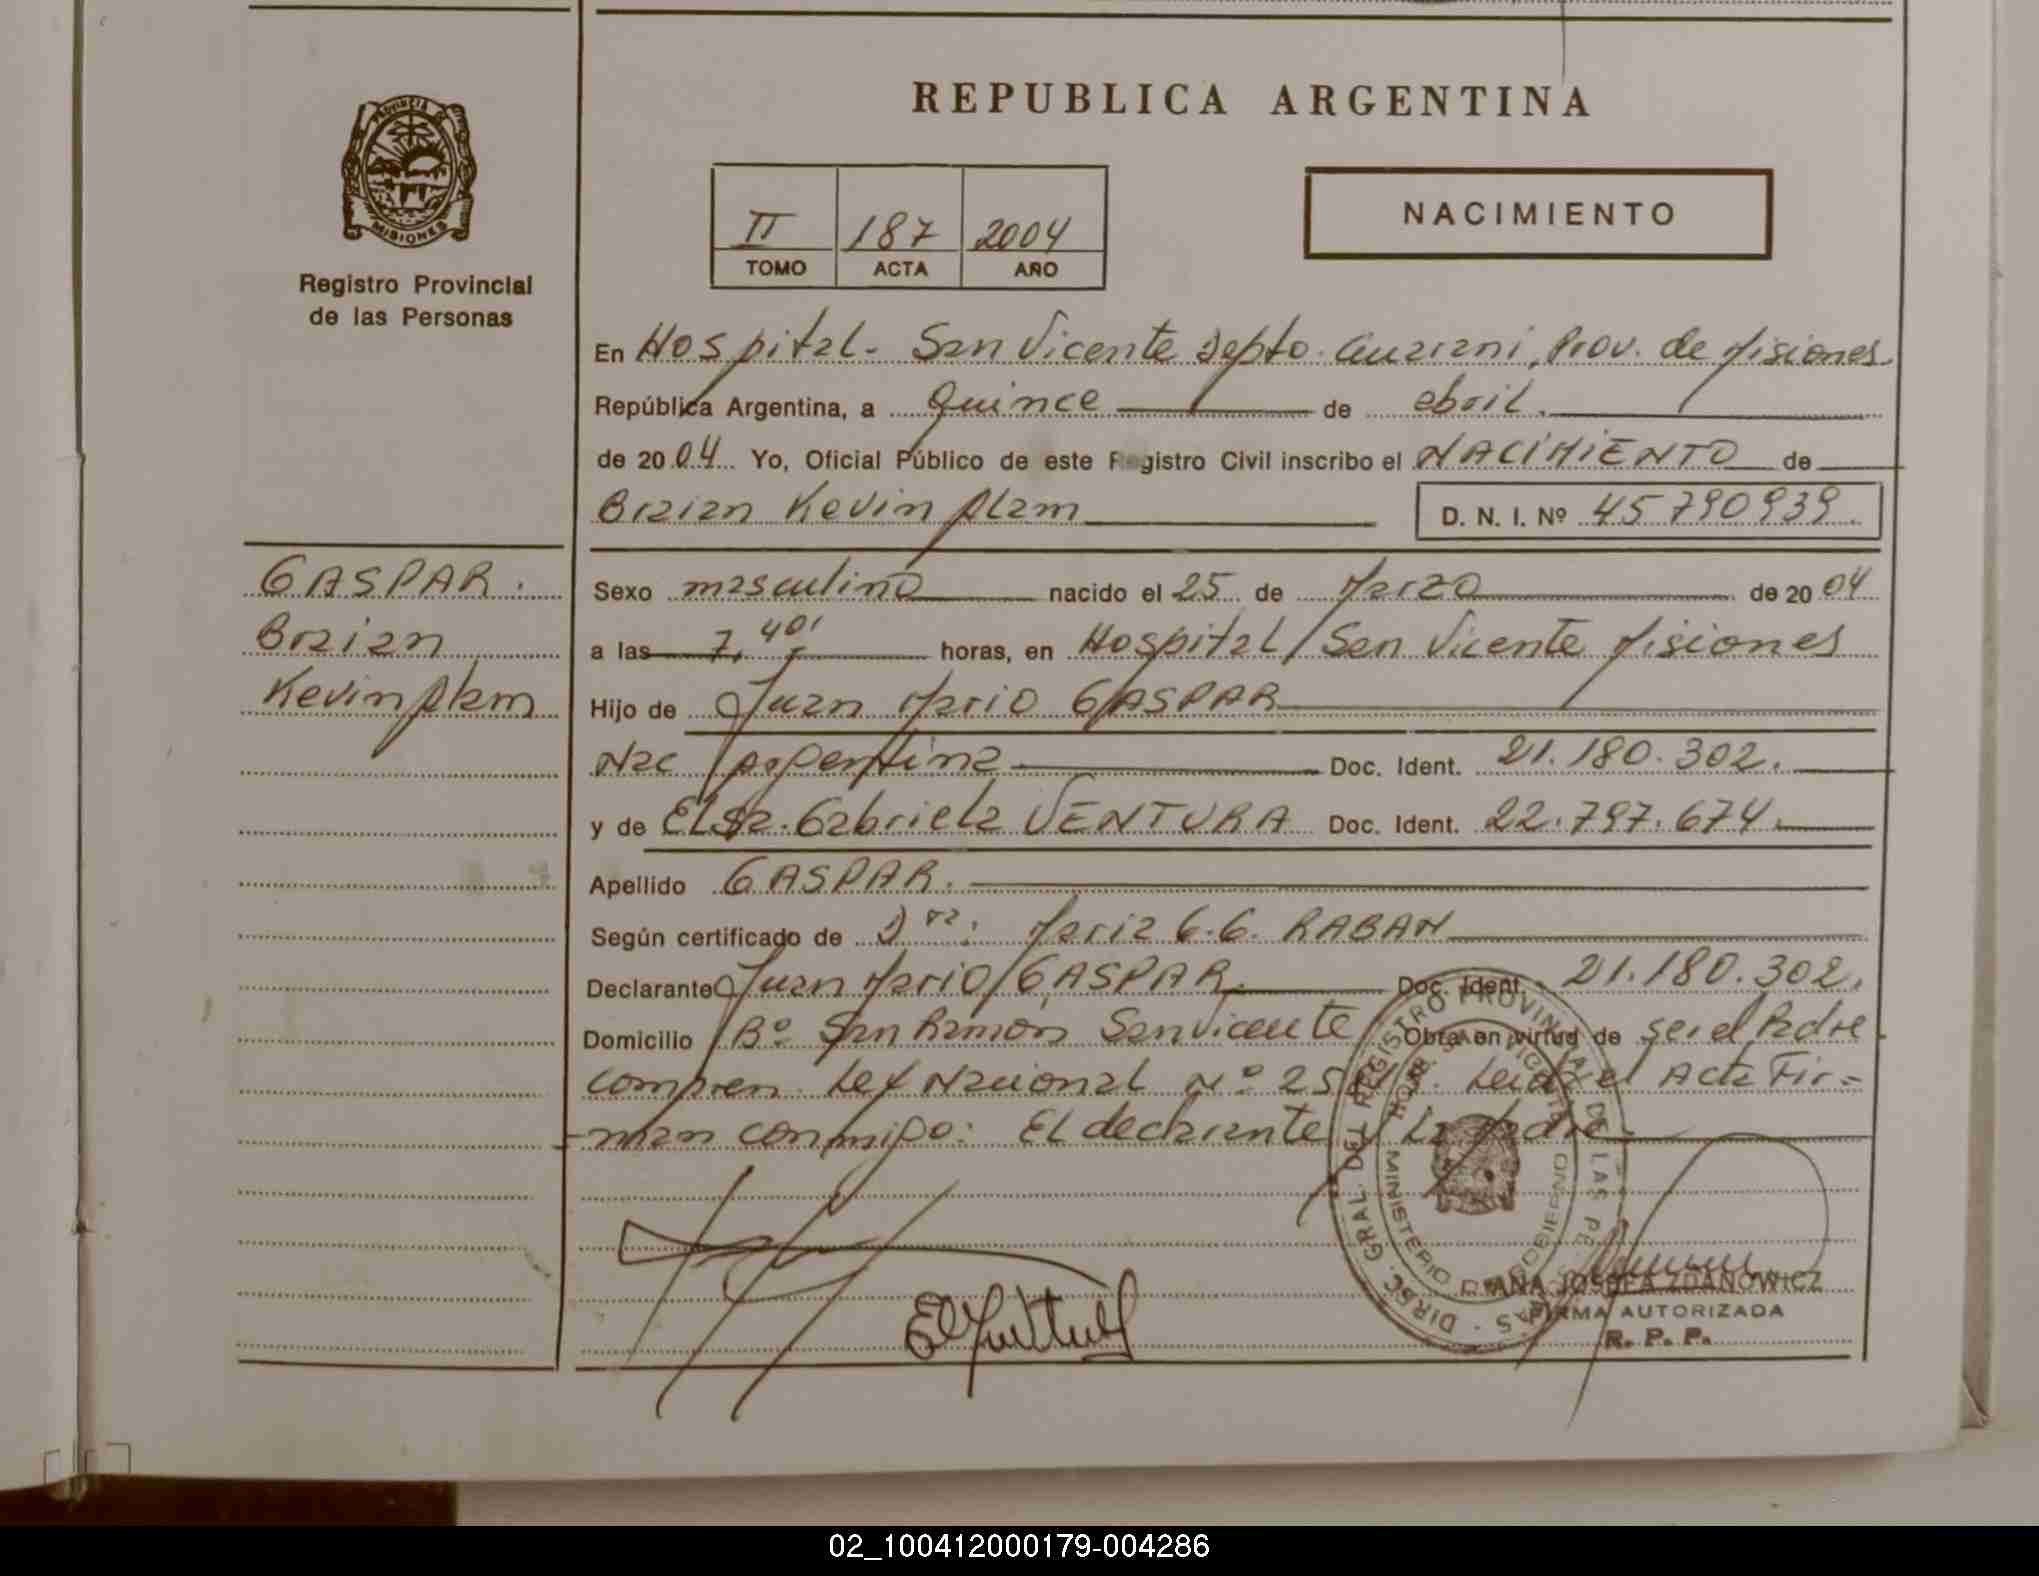 PROVINCIA DE
MISIONES
Registro Provincial
de las Personas
REPUBLICA ARGENTINA
II 187 2004
TOMO ACTA AÑO
NACIMIENTO
En Hospital - San Vicente Depto. Guaraní, Prov. de Misiones
República Argentina, a Quince de abril.
de 2004 Yo, Oficial Público de este Registro Civil inscribo el NACIMIENTO de
Braian Kevin Alam D. N. I. Nº 45790939.
GASPAR.
Braian
Kevin Alam
Sexo masculino nacido el 25 de Marzo de 2004
a las 7,40' horas, en Hospital San Vicente Misiones
Hijo de Juan Mario GASPAR
Nac Argentina Doc. Ident. 21.180.302.
y de Elsa Gabriela VENTURA Doc. Ident. 22.797.674.
Apellido GASPAR.
Según certificado de Dra: Maria G.G. RABAN
Declarante Juan Mario GASPAR. Doc. Ident. 21.180.302.
Domicilio Bº San Ramón San Vicente Obra en virtud de ser el Padre
compren. Ley Nacional Nº 25 Leida el Acta Fir=
-man conmigo: El declarante y La Madre.
DIREC. GRAL. DEL REGISTRO PROVINCIAL DE LAS PERSONAS
MINISTERIO DE GOBIERNO
ANA JOSEFA ZDANOWICZ
FIRMA AUTORIZADA
R. P. P.
02_100412000179-004286